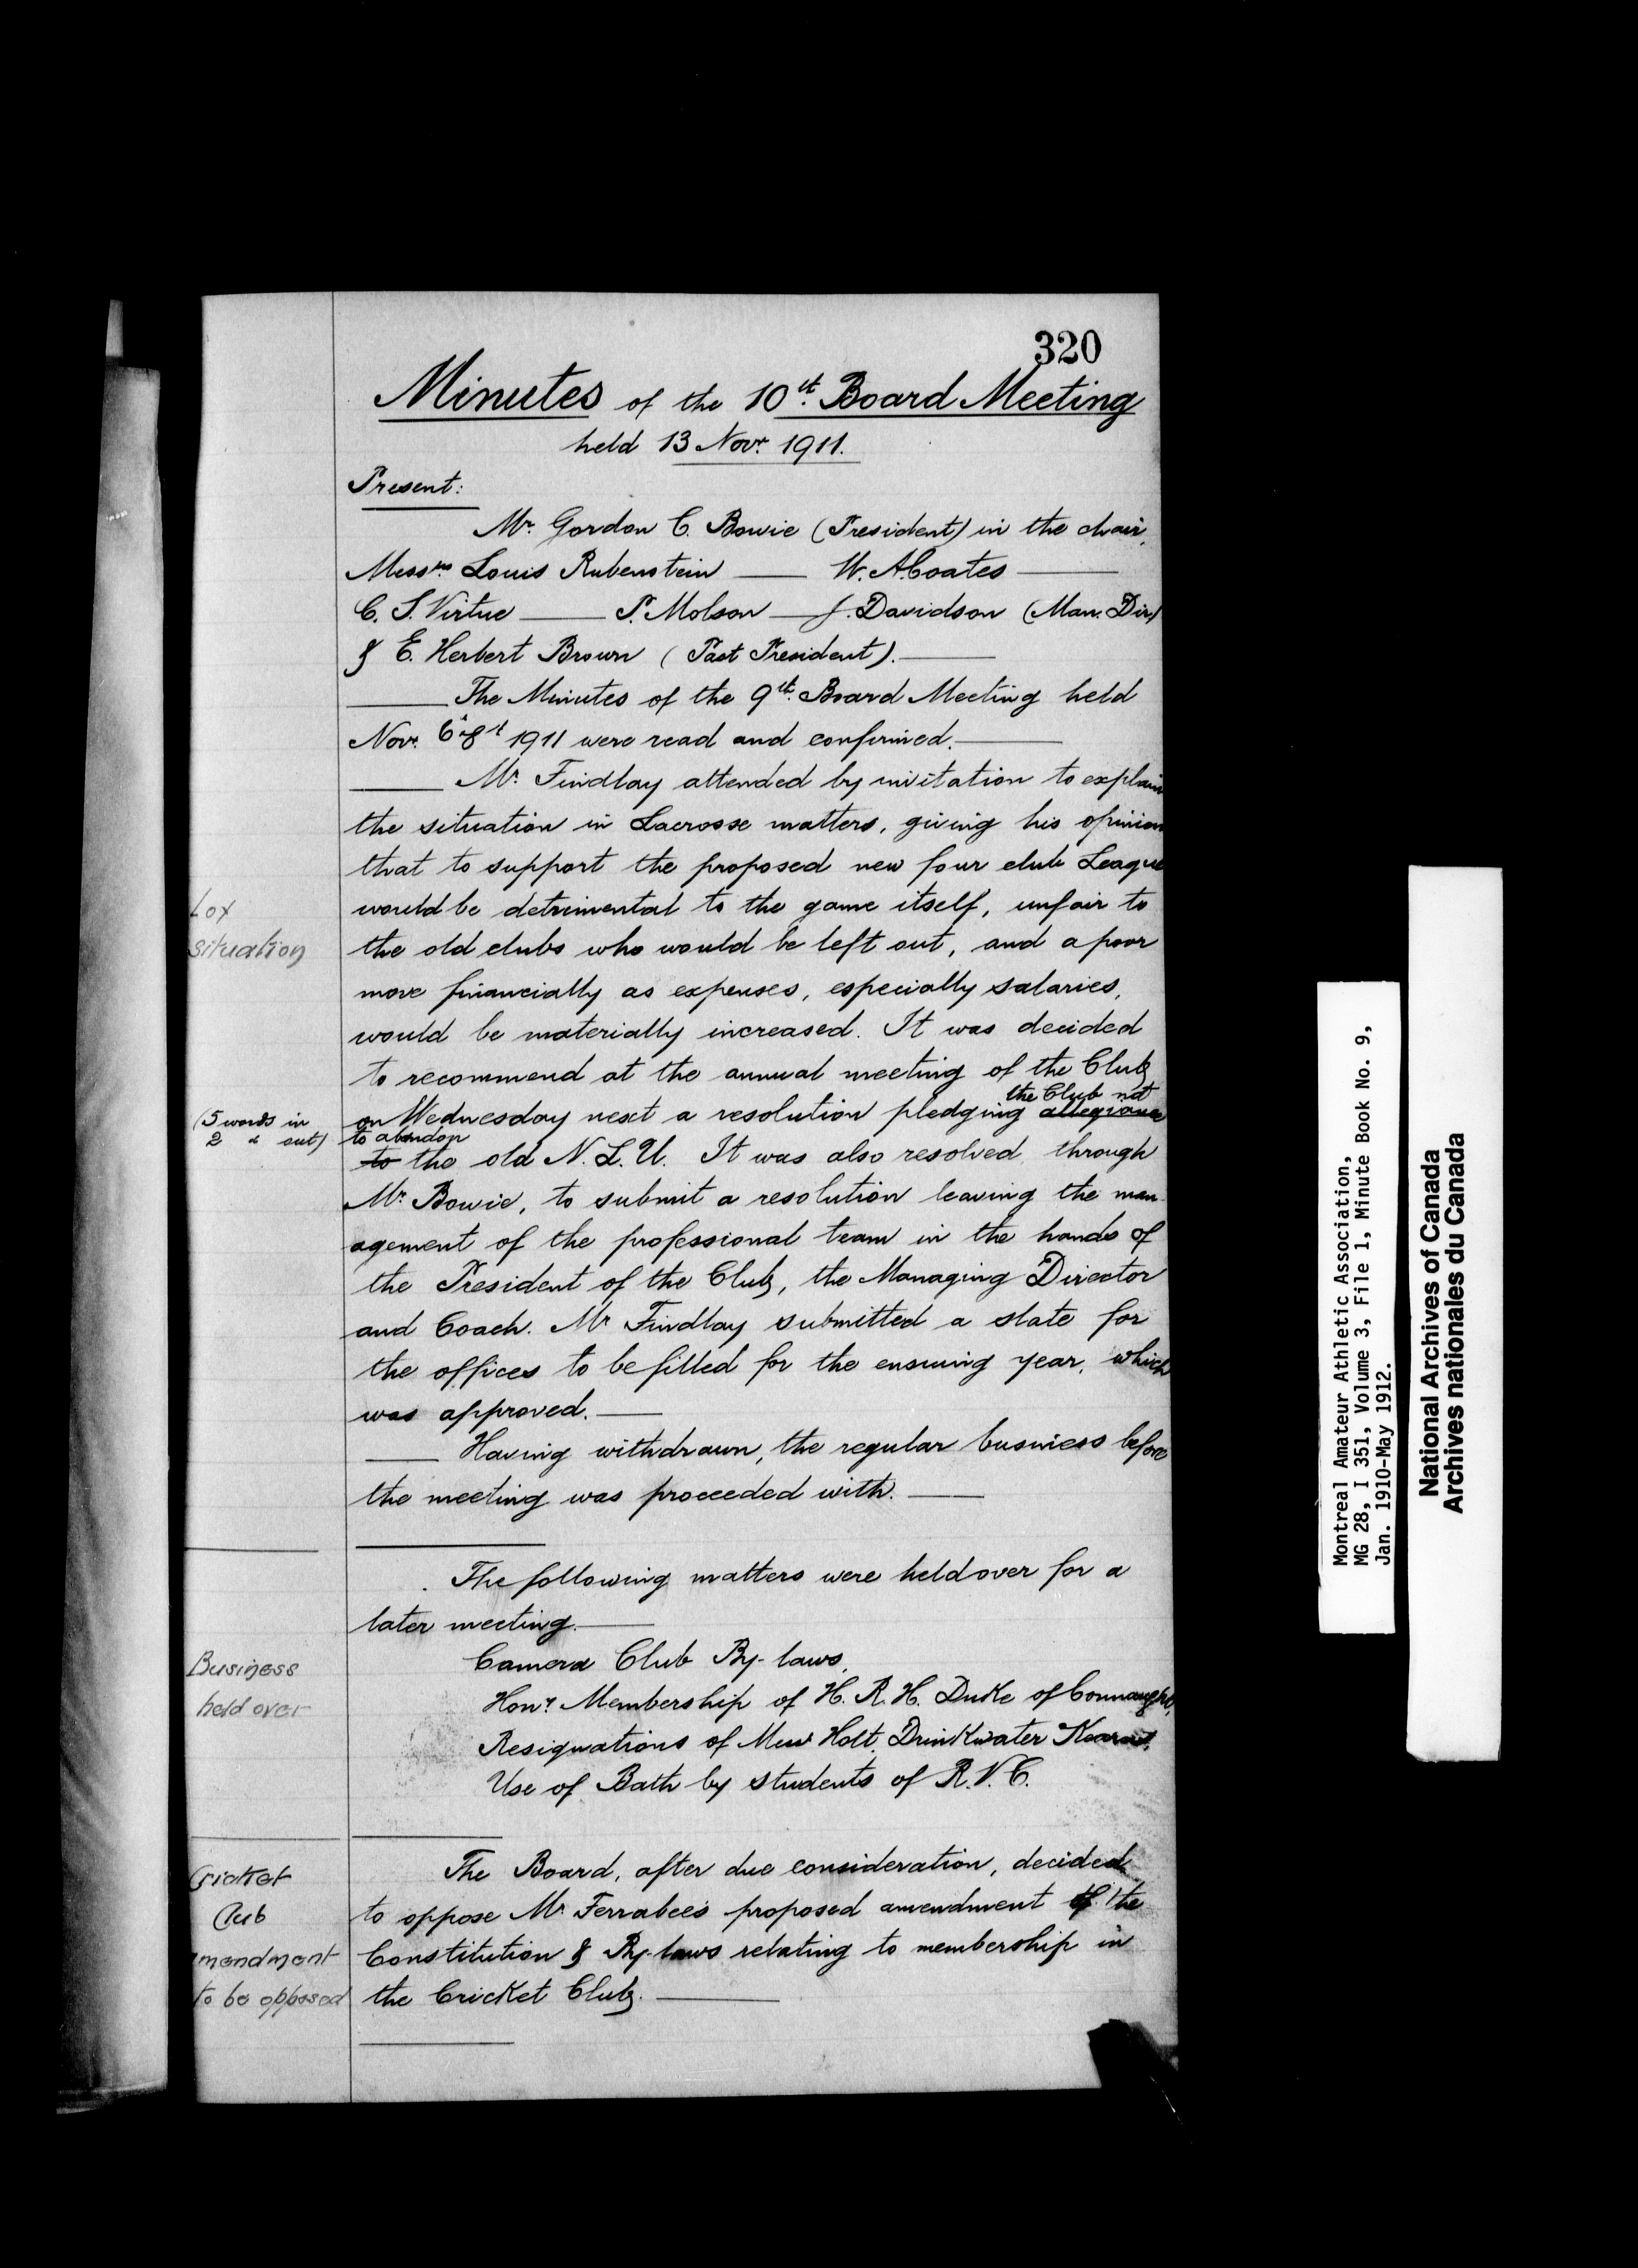 320
Minutes of the 10th Board Meeting
held 13 Novr 1911.
Present:
Mr. Gordon C. Bowie (President) in the chair,
Messrs Louis Rubenstein — W. A. Coates —
C. S. Virtue — P. Molson — J. Davidson (Man. Dir)
& E. Herbert Brown (Past President). —
— The Minutes of the 9th Board Meeting held
Novr. 6 & 8th 1911 were read and confirmed. —
— Mr. Findlay attended by invitation to explain
the situation in Lacrosse matters, giving his opinion
that to support the proposed new four club League
Lox
would be detrimental to the game itself, unfair to
situation
the old clubs who would be left out, and a poor
move financially as expenses, especially salaries,
would be materially increased. It was decided
to recommend at the annual meeting of the Club,
the Club not
(5 words in
on Wednesday next a resolution pledging allegiance
2 " out)
to abandon
to the old N. L. U. It was also resolved, through
Mr. Bowie, to submit a resolution leaving the man-
agement of the professional team in the hands of
the President of the Club, the Managing Director
and Coach. Mr Findlay submitted a slate for
the offices to be filled for the ensuing year, which
was approved. —
— Having withdrawn, the regular business before
the meeting was proceeded with. —
The following matters were held over for a
later meeting. —
Business
Camera Club By-laws,
held over
Hony. Membership of H. R. H. Duke of Connaught,
Resignations of Holt, Drinkwater
Use of Bath by students of R. V. C.
Cricket
The Board, after due consideration, decided
Club
to oppose Mr. Ferrabee's proposed amendment of the
mendment
Constitution & By-laws relating to membership in
to be opposed
the Cricket Club. —
Montreal Amateur Athletic Association,
MG 28, I 351, Volume 3, File 1, Minute Book No. 9,
Jan. 1910-May 1912.
National Archives of Canada
Archives nationales du Canada